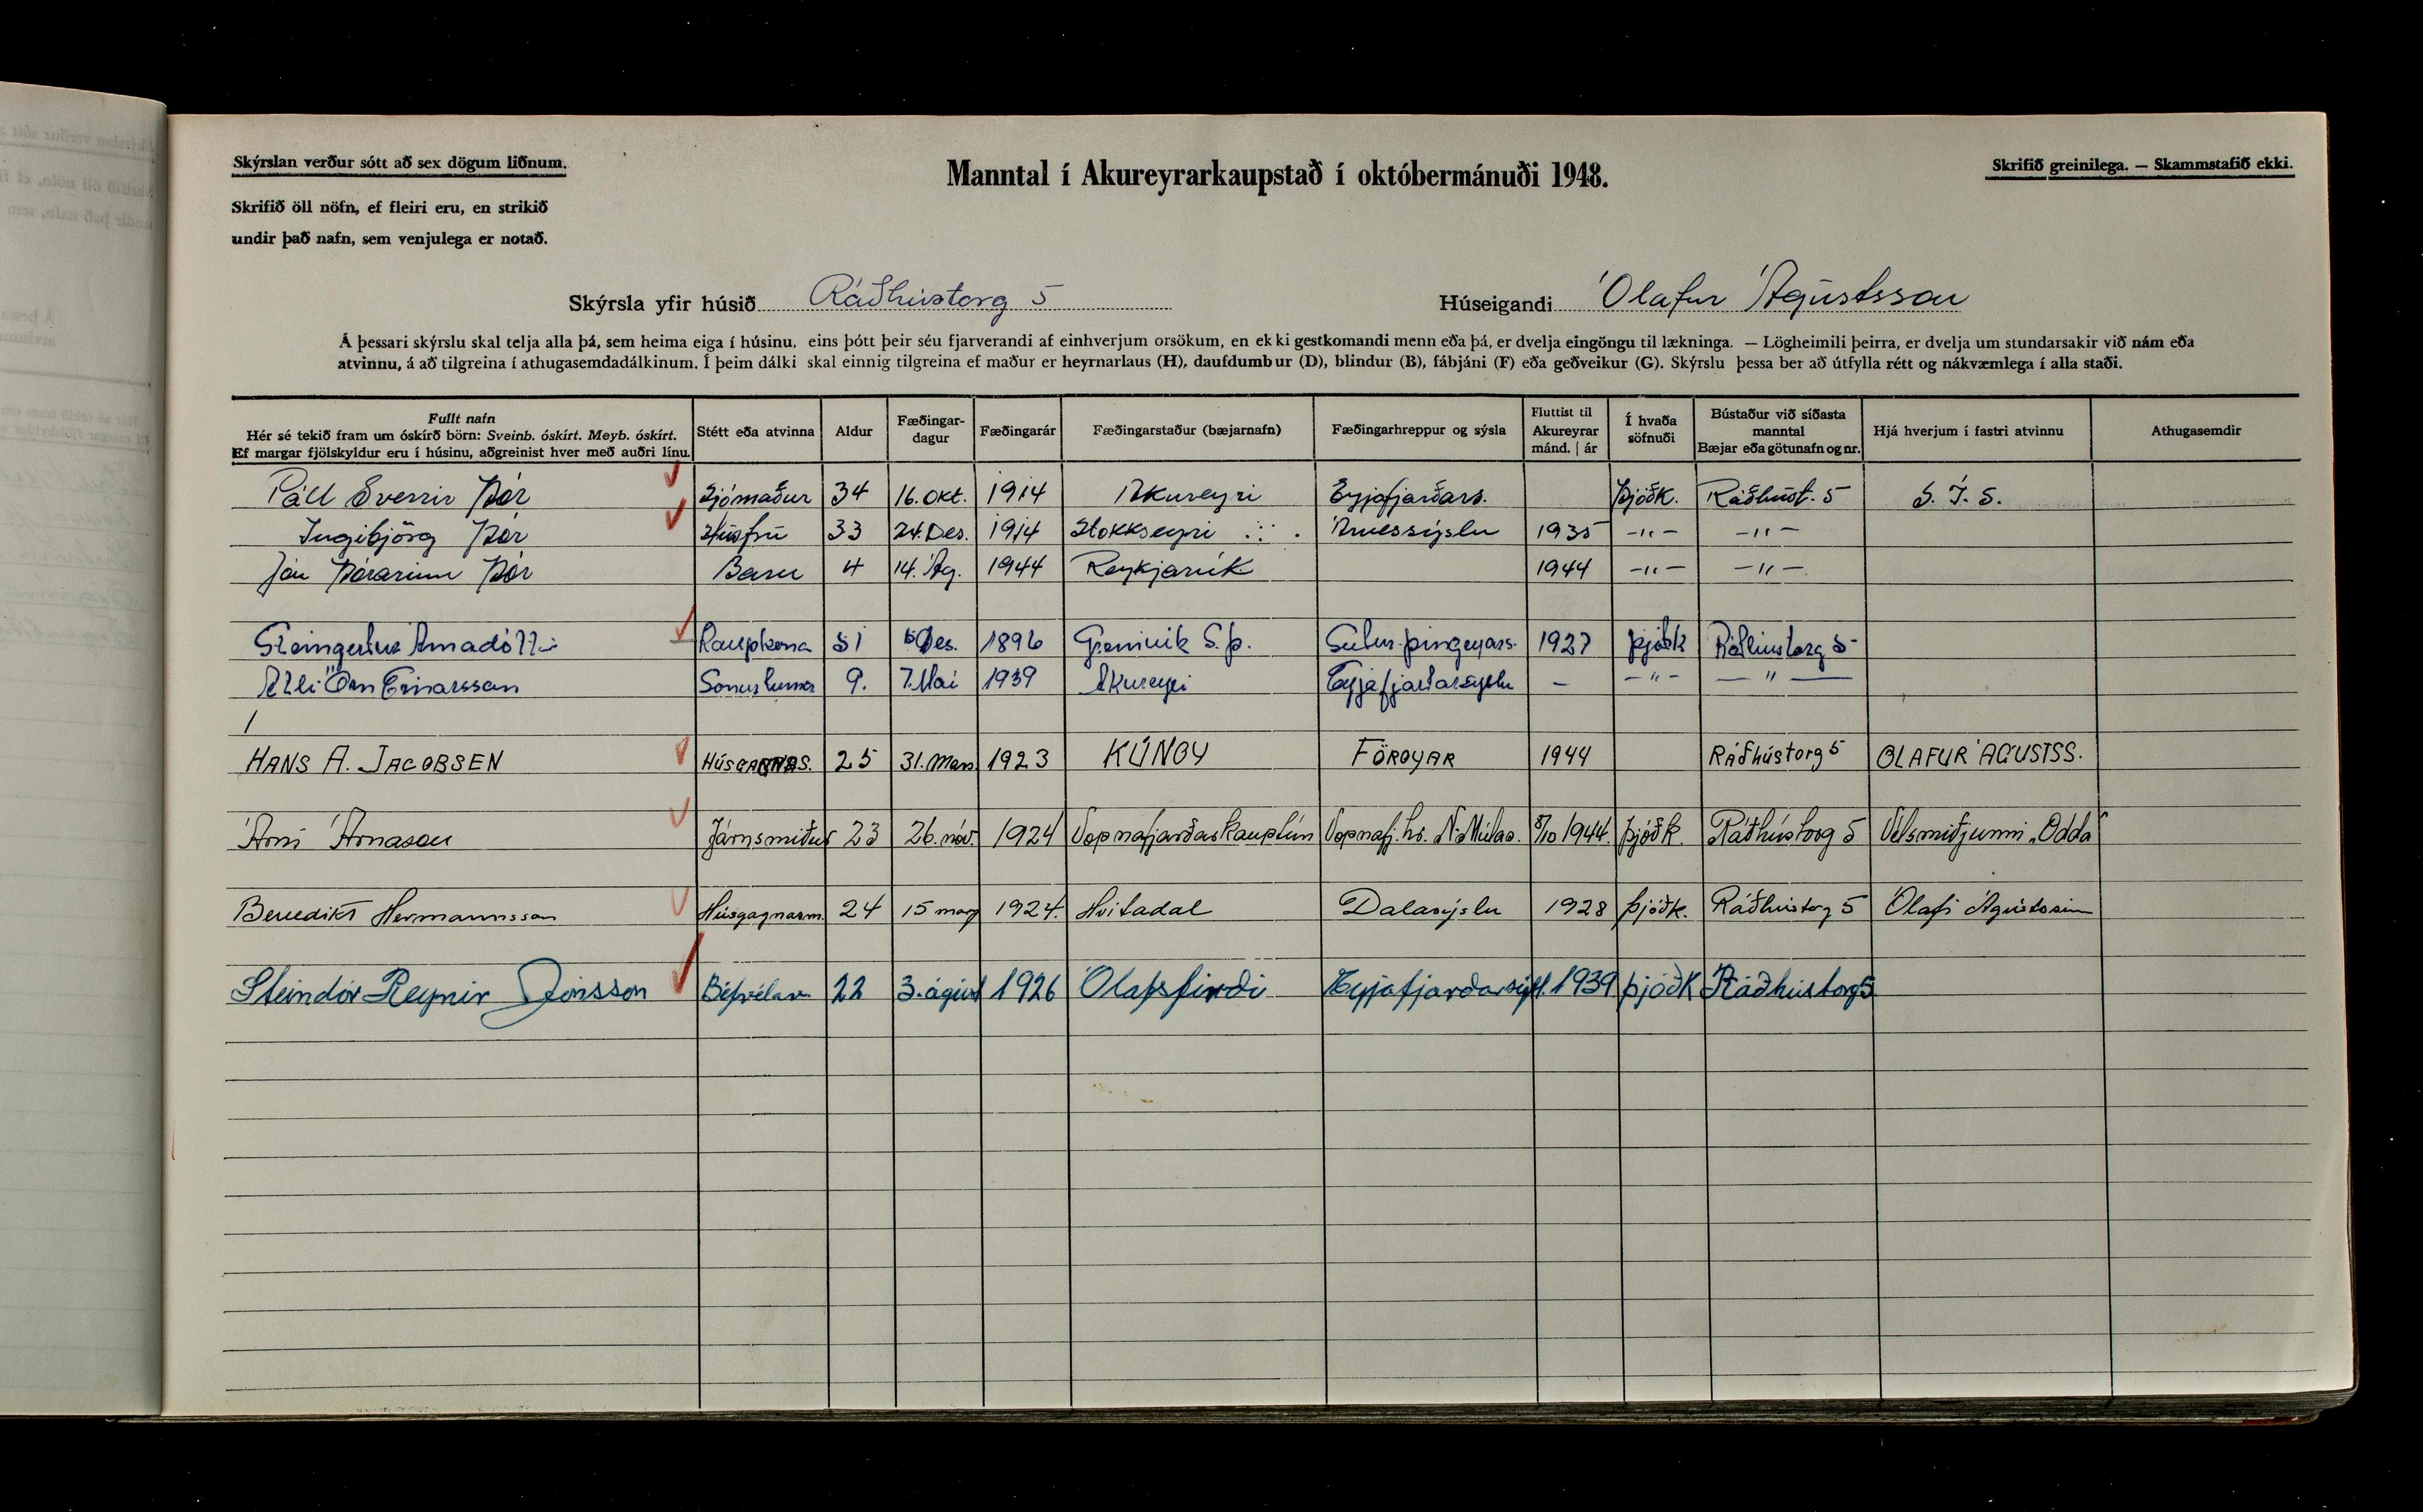 Skýrslan verður sótt að sex dögum liðnum.
Manntal í Akureyrarkaupstað í októbermánuði 1948.
Skrifið greinilega. — Skammstafið ekki.
Skrifið öll nöfn, ef fleiri eru, en strikið
undir það nafn, sem venjulega er notað.
Skýrsla yfir húsið Ráðhústorg 5 Húseigandi Ólafur Ágústsson
Á þessari skýrslu skal telja alla þá, sem heima eiga í húsinu, eins þótt þeir séu fjarverandi af einhverjum orsökum, en ekki gestkomandi menn eða þá, er dvelja eingöngu til lækninga. — Lögheimili þeirra, er dvelja um stundarsakir við nám eða
atvinnu, á að tilgreina í athugasemdadálkinum. Í þeim dálki skal einnig tilgreina ef maður er heyrnarlaus (H), daufdumbur (D), blindur (B), fábjáni (F) eða geðveikur (G). Skýrslu þessa ber að útfylla rétt og nákvæmlega í alla staði.
Fullt nafn
Hér sé tekið fram um óskírð börn: Sveinb. óskírt. Meyb. óskírt.
Ef margar fjölskyldur eru í húsinu, aðgreinist hver með auðri línu.
Stétt eða atvinna
Aldur
Fæðingar-
dagur
Fæðingarár
Fæðingarstaður (bæjarnafn)
Fæðingarhreppur og sýsla
Fluttist til
Akureyrar
mánd. | ár
Í hvaða
söfnuði
Bústaður við síðasta
manntal
Bæjar eða götunafn og nr.
Hjá hverjum í fastri atvinnu
Athugasemdir
Páll Sverrir Þór Sjómaður 34 16. okt. 1914 Akureyri Eyjafjarðars. Þjóðk. Ráðhúst. 5 S. Í. S.
Ingibjörg Þór Húsfrú 33 24. Des. 1914 Stokkseyri Árnessýslu 1935 -"- -"-
Jón Þórarinn Þór Barn 4 14. Ág. 1944 Reykjavík 1944 -"- -"-
Kaupkona 51 Des. 1896 Grenivík S.þ. Suður-þingeyars. 1927 þjóðk Ráðhústorg 5
Atli Örn Einarsson 9. 7. Maí 1939 Akureyri Eyjafjarðarsýslu - -"- -"-
HANS A. JACOBSEN 25 31. Mars 1923 KÚNOY FÖROYAR 1944 Ráðhústorg 5 OLAFUR ÁGÚSTSS.
Árni Árnason Járnsmiður 23 26. nóv. 1924 Vopnafjarðarkauptún Vopnafj.hr. N-Múlas. 8/10 1944. þjóðk. Ráðhústorg 5 Vélsmiðjunni „Odda“
Benedikt Hermannsson Húsgagnasm. 24 15 marz 1924. Hvítadal Dalasýslu 1928 þjóðk. Ráðhústorg 5 Ólafi Ágústssini
Steindór Reynir Jónsson Bifvélav. 22 3. ágúst 1926 Ólafsfirði Eyjafjarðarsýsl. 1939 þjóðk Ráðhústorg 5